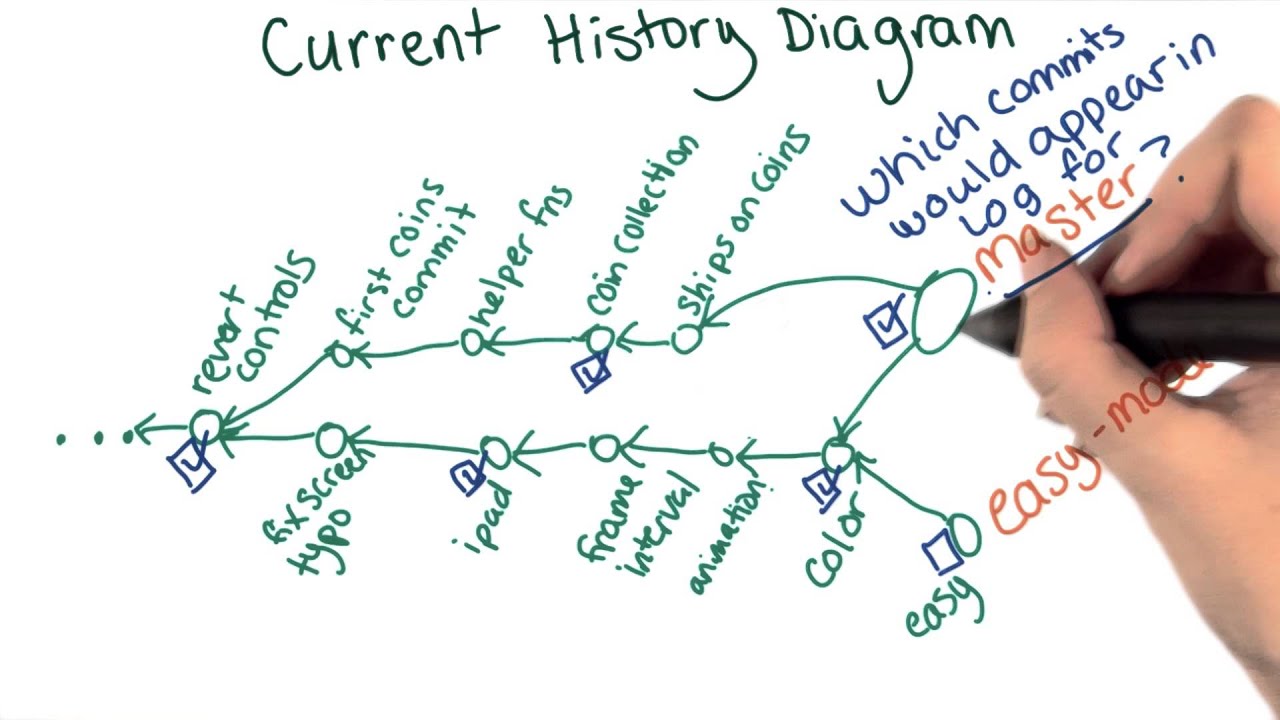 Current History Diagram
which commits
would appear in
log for ?
master
revert
controls
first coins
commit
helper fns
coin collection
ships on coins
fix screen
typo
ipad
frame
interval
animation
color
easy
easy-mode